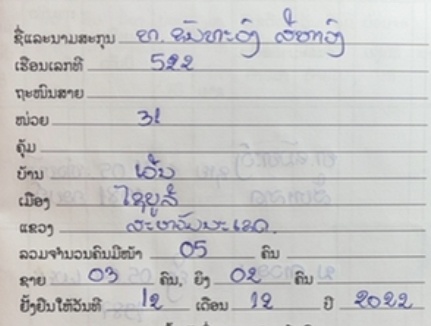 ຊື່ແລະນາມສະກຸນ ທ.
ເຮືອນເລກທີ 522
ຖະໜົນສາຍ
ໜ່ວຍ 31
ຄຸ້ມ
ບ້ານ
ເມືອງ ໄຊບູລີ
ແຂວງ ສະຫວັນນະເຂດ
ລວມຈຳນວນຄົນມີໜ້າ 05 ຄົນ
ຊາຍ 03 ຄົນ, ຍິງ 02 ຄົນ
ຢັ້ງຢືນໃຫ້ວັນທີ 12 ເດືອນ 12 ປີ 2022